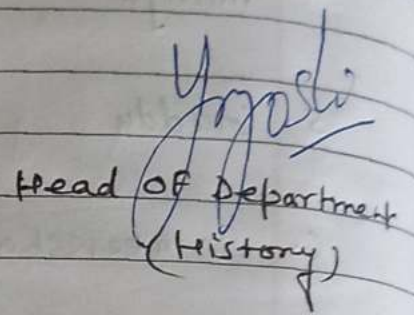 Yjoshi
Head of Department
(History)